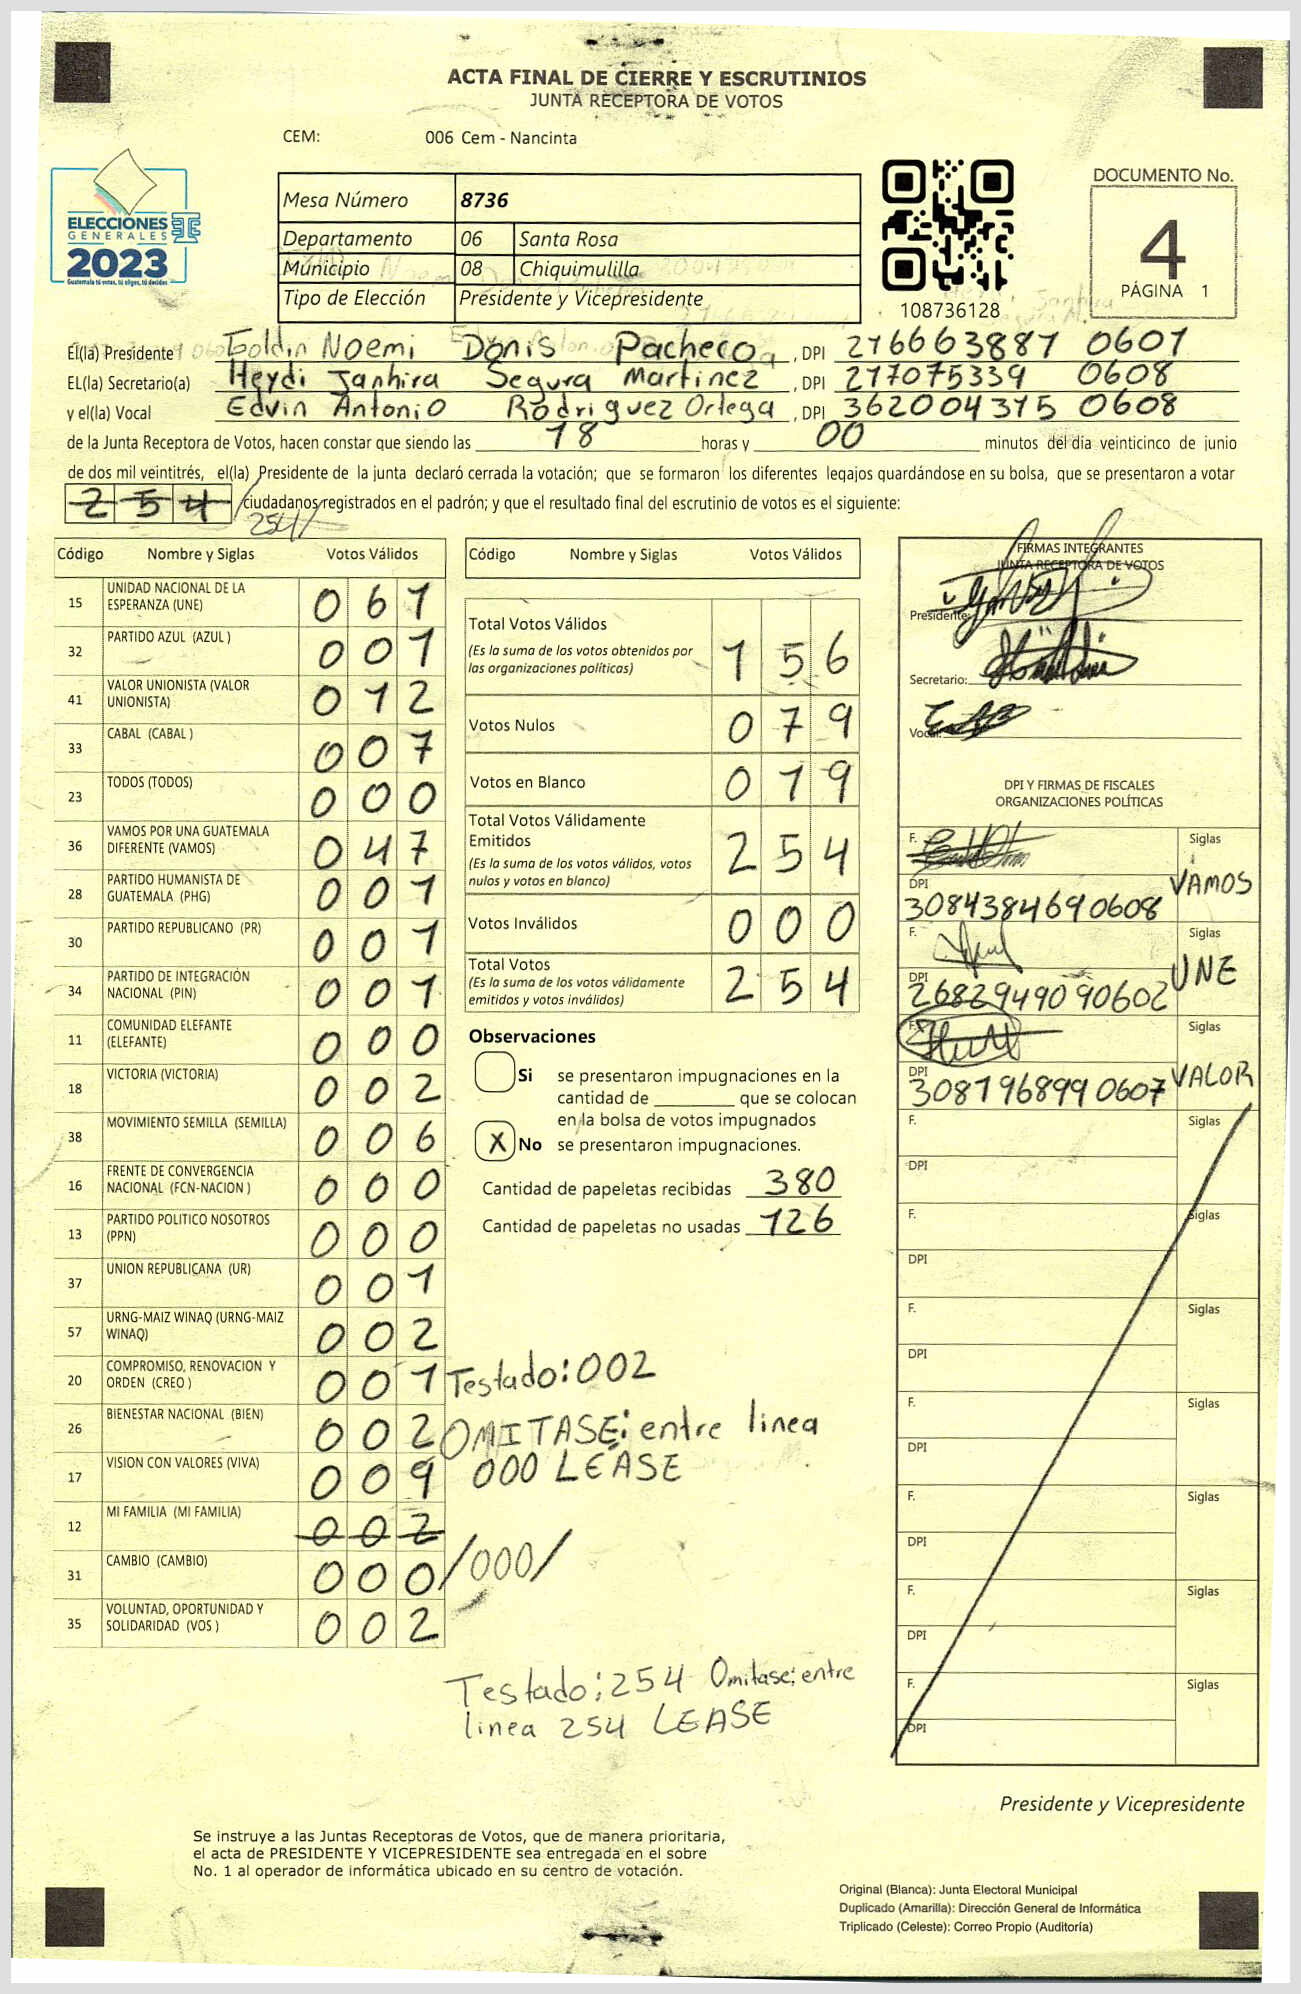 ACTA FINAL DE CIERRE Y ESCRUTINIOS
JUNTA RECEPTORA DE VOTOS
CEM: 006 Cem - Nancinta
ELECCIONES
GENERALES
2023
Guatemala tú votas, tú eliges, tú decides
Mesa Número 8736
Departamento 06 Santa Rosa
Municipio 08 Chiquimulilla
Tipo de Elección Presidente y Vicepresidente
108736128
DOCUMENTO No.
4
PÁGINA 1
El(la) Presidente Goldin Noemi Donis Pacheco, DPI 216663887 0607
EL(la) Secretario(a) Heydi Janhira Segura Martinez, DPI 217075339 0608
y el(la) Vocal Edvin Antonio Rodriguez Ortega, DPI 362004315 0608
de la Junta Receptora de Votos, hacen constar que siendo las 18 horas y 00 minutos del dia veinticinco de junio
de dos mil veintitrés, el(la) Presidente de la junta declaró cerrada la votación; que se formaron los diferentes legajos quardándose en su bolsa, que se presentaron a votar
254 ciudadanos registrados en el padrón; y que el resultado final del escrutinio de votos es el siguiente:
/254/
Código Nombre y Siglas Votos Válidos
15 UNIDAD NACIONAL DE LA ESPERANZA (UNE) 061
32 PARTIDO AZUL (AZUL ) 001
41 VALOR UNIONISTA (VALOR UNIONISTA) 012
33 CABAL (CABAL ) 007
23 TODOS (TODOS) 000
36 VAMOS POR UNA GUATEMALA DIFERENTE (VAMOS) 047
28 PARTIDO HUMANISTA DE GUATEMALA (PHG) 001
30 PARTIDO REPUBLICANO (PR) 001
34 PARTIDO DE INTEGRACIÓN NACIONAL (PIN) 001
11 COMUNIDAD ELEFANTE (ELEFANTE) 000
18 VICTORIA (VICTORIA) 002
38 MOVIMIENTO SEMILLA (SEMILLA) 006
16 FRENTE DE CONVERGENCIA NACIONAL (FCN-NACION ) 000
13 PARTIDO POLITICO NOSOTROS (PPN) 000
37 UNION REPUBLICANA (UR) 001
57 URNG-MAIZ WINAQ (URNG-MAIZ WINAQ) 002
20 COMPROMISO, RENOVACION Y ORDEN (CREO ) 001
26 BIENESTAR NACIONAL (BIEN) 002
17 VISION CON VALORES (VIVA) 009
12 MI FAMILIA (MI FAMILIA) 002
31 CAMBIO (CAMBIO) 000 /000/
35 VOLUNTAD, OPORTUNIDAD Y SOLIDARIDAD (VOS ) 002
Código Nombre y Siglas Votos Válidos
Total Votos Válidos 156
(Es la suma de los votos obtenidos por
las organizaciones políticas)
Votos Nulos 079
Votos en Blanco 019
Total Votos Válidamente
Emitidos 254
(Es la suma de los votos válidos, votos
nulos y votos en blanco)
Votos Inválidos 000
Total Votos 254
(Es la suma de los votos válidamente
emitidos y votos inválidos)
Observaciones
Si se presentaron impugnaciones en la
cantidad de ________ que se colocan
en la bolsa de votos impugnados
X No se presentaron impugnaciones.
Cantidad de papeletas recibidas 380
Cantidad de papeletas no usadas 126
Testado: 002
OMITASE: entre linea
000 LEASE
Testado: 254 Omitase: entre
linea 254 LEASE
FIRMAS INTEGRANTES
JUNTA RECEPTORA DE VOTOS
Presidente:
Secretario:
Vocal:
DPI Y FIRMAS DE FISCALES
ORGANIZACIONES POLÍTICAS
F. Siglas
VAMOS
DPI
3084384690608
F. Siglas
UNE
DPI
2682949090602
F. Siglas
VALOR
DPI
3081968990607
F. Siglas
DPI
F. Siglas
DPI
F. Siglas
DPI
F. Siglas
DPI
F. Siglas
DPI
F. Siglas
DPI
F. Siglas
DPI
Presidente y Vicepresidente
Se instruye a las Juntas Receptoras de Votos, que de manera prioritaria,
el acta de PRESIDENTE Y VICEPRESIDENTE sea entregada en el sobre
No. 1 al operador de informática ubicado en su centro de votación.
Original (Blanca): Junta Electoral Municipal
Duplicado (Amarilla): Dirección General de Informática
Triplicado (Celeste): Correo Propio (Auditoría)